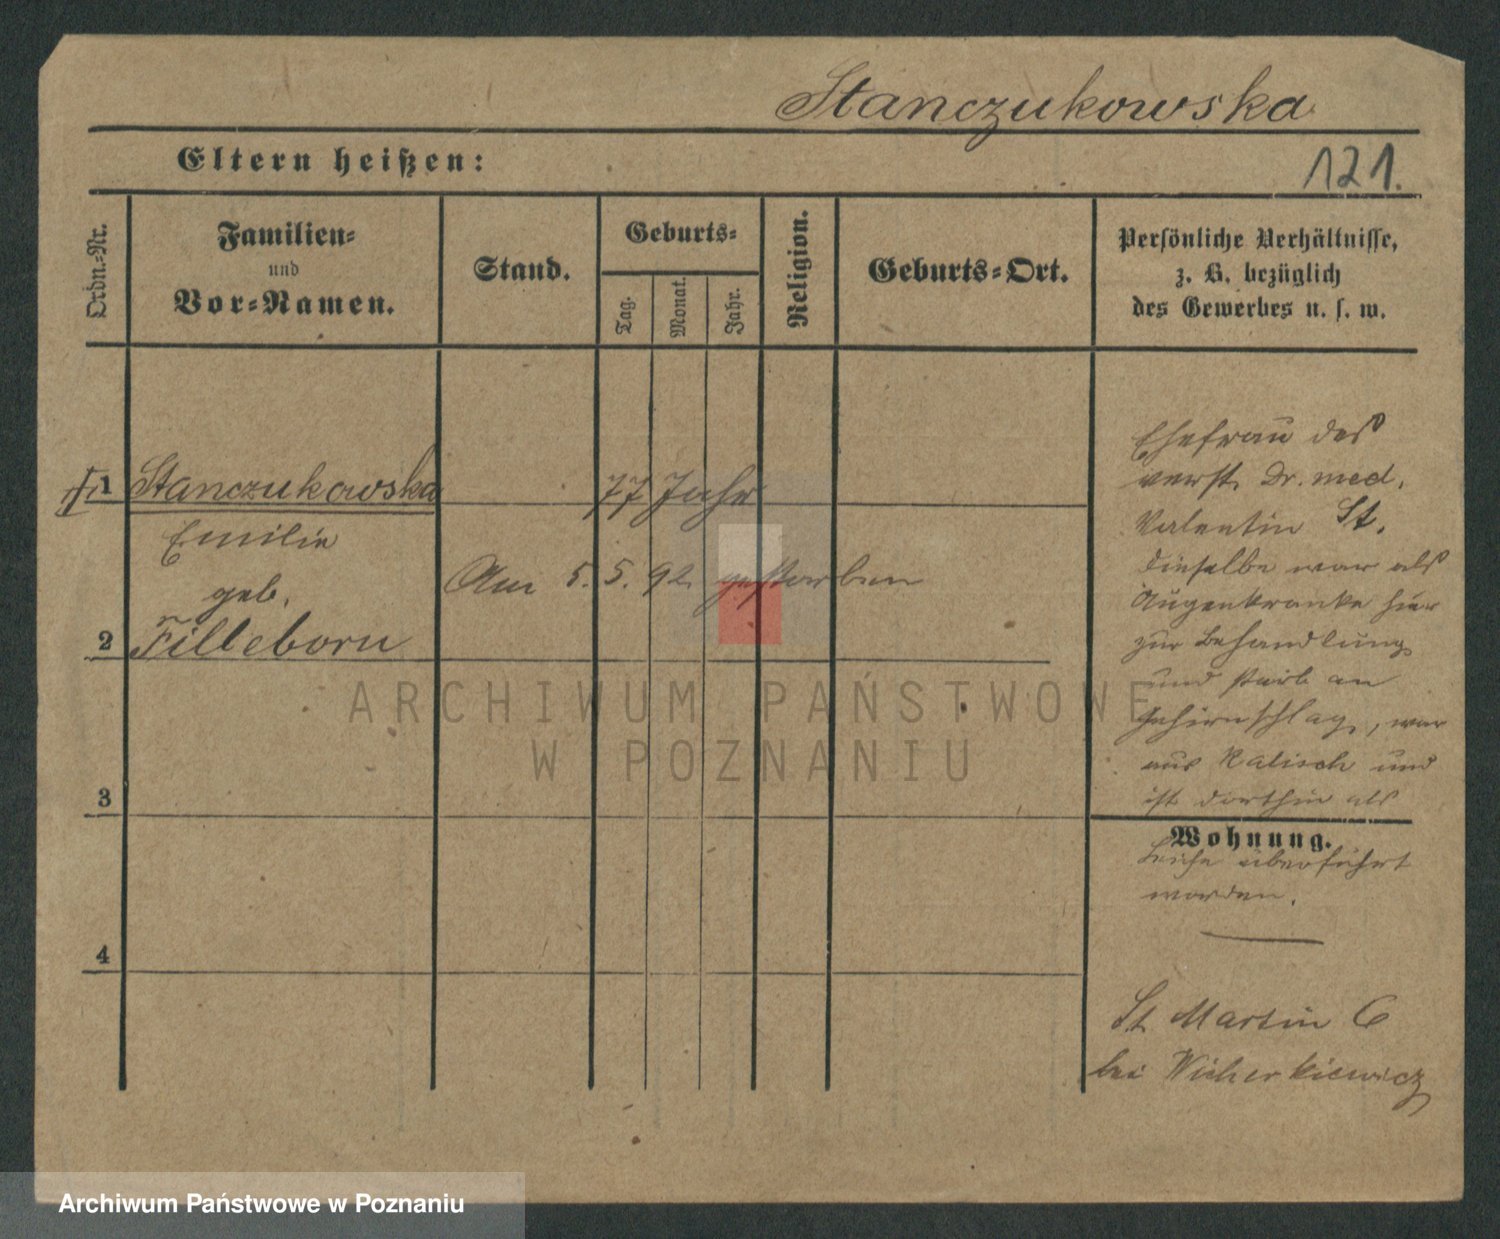 Stanczukowska
Eltern heißen:
121.
Ordn.-Nr.
Familien-
und
Vor-Namen.
Stand.
Geburts-
Tag.
Monat.
Jahr.
Religion.
Geburts-Ort.
Persönliche Verhältnisse,
z. B. bezüglich
des Gewerbes u. s. w.
1
Stanczukowska
77 Jahr
Emilie
geb.
Am 5. 5. 92 gestorben
2
Filleborn
3
4
Ehefrau des
verst. Dr. med.
Valentin St.
dieselbe war als
Augenkranke hier
zur Behandlung
und starb an
Gehirnschlag, war
aus Kalisch und
ist dorthin als
Wohnung.
Leiche überführt
worden.
St Martin 6
bei Wicherkiewicz
ARCHIWUM PAŃSTWOWE
W POZNANIU
Archiwum Państwowe w Poznaniu